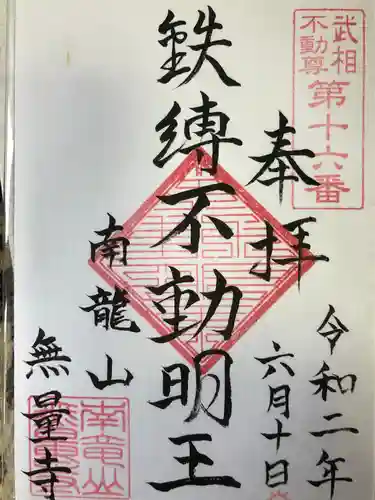 武相
不動尊
第十六番
奉拝
令和二年
六月十日
鉄縛不動明王
南龍山
無量寺
南竜山